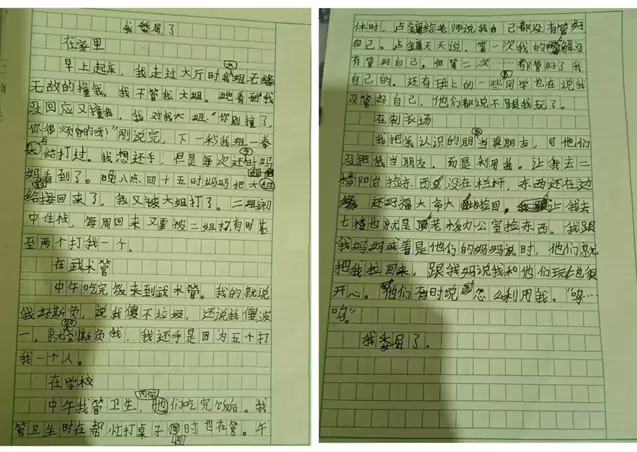 我委屈了
在家里
早上起来，我走过大厅时我大姐无缘
无故的撞我，我不管我大姐。她看到我
没回应又撞我，我对我大姐:“你别撞了，
你很烦的呀!”刚说完，下一秒我姐一拳
给打过。我想还手，但是每次还时妈
妈看到了。晚八点四十五时妈妈把大
给接回来了，我又被大姐打了。二姐初
中住校，每周回来又要被二姐打有时甚
至两个打我一个。
在武术管
中午吃完饭来到武术管。我的就说
我好欺负，说我傻不垃圾，还说我傻波
一。欺负我，我还手是因为五个打
我一个人。
在学校
中午我管卫生，他们吃完饭后。我
管卫生时在帮忙打桌子同时也在管。午
休时，卢给老师说我自己都没有管好
自己。卢天天说，第一次我的
有管好自己。但第二次……都管好了我
自己的。还有班上的一些同学也在说我
没管好自己，他们都说不跟我玩了。
在包衣场
我把我认识的朋当真朋友，可他们
没把我当朋友，而是利用我。让我去二
楼阳台捡东西没在栏杆，东西还在边
缘还好福大命大捡回。让我去
七楼也就是顶老板办公室捡东西。我跟
我妈妈或者是他们的妈妈说时，他们就
把我拉回来，跟我妈说我和他们玩也很
开心。他们有时说怎么利用我。“呜…
呜”
我委屈了。